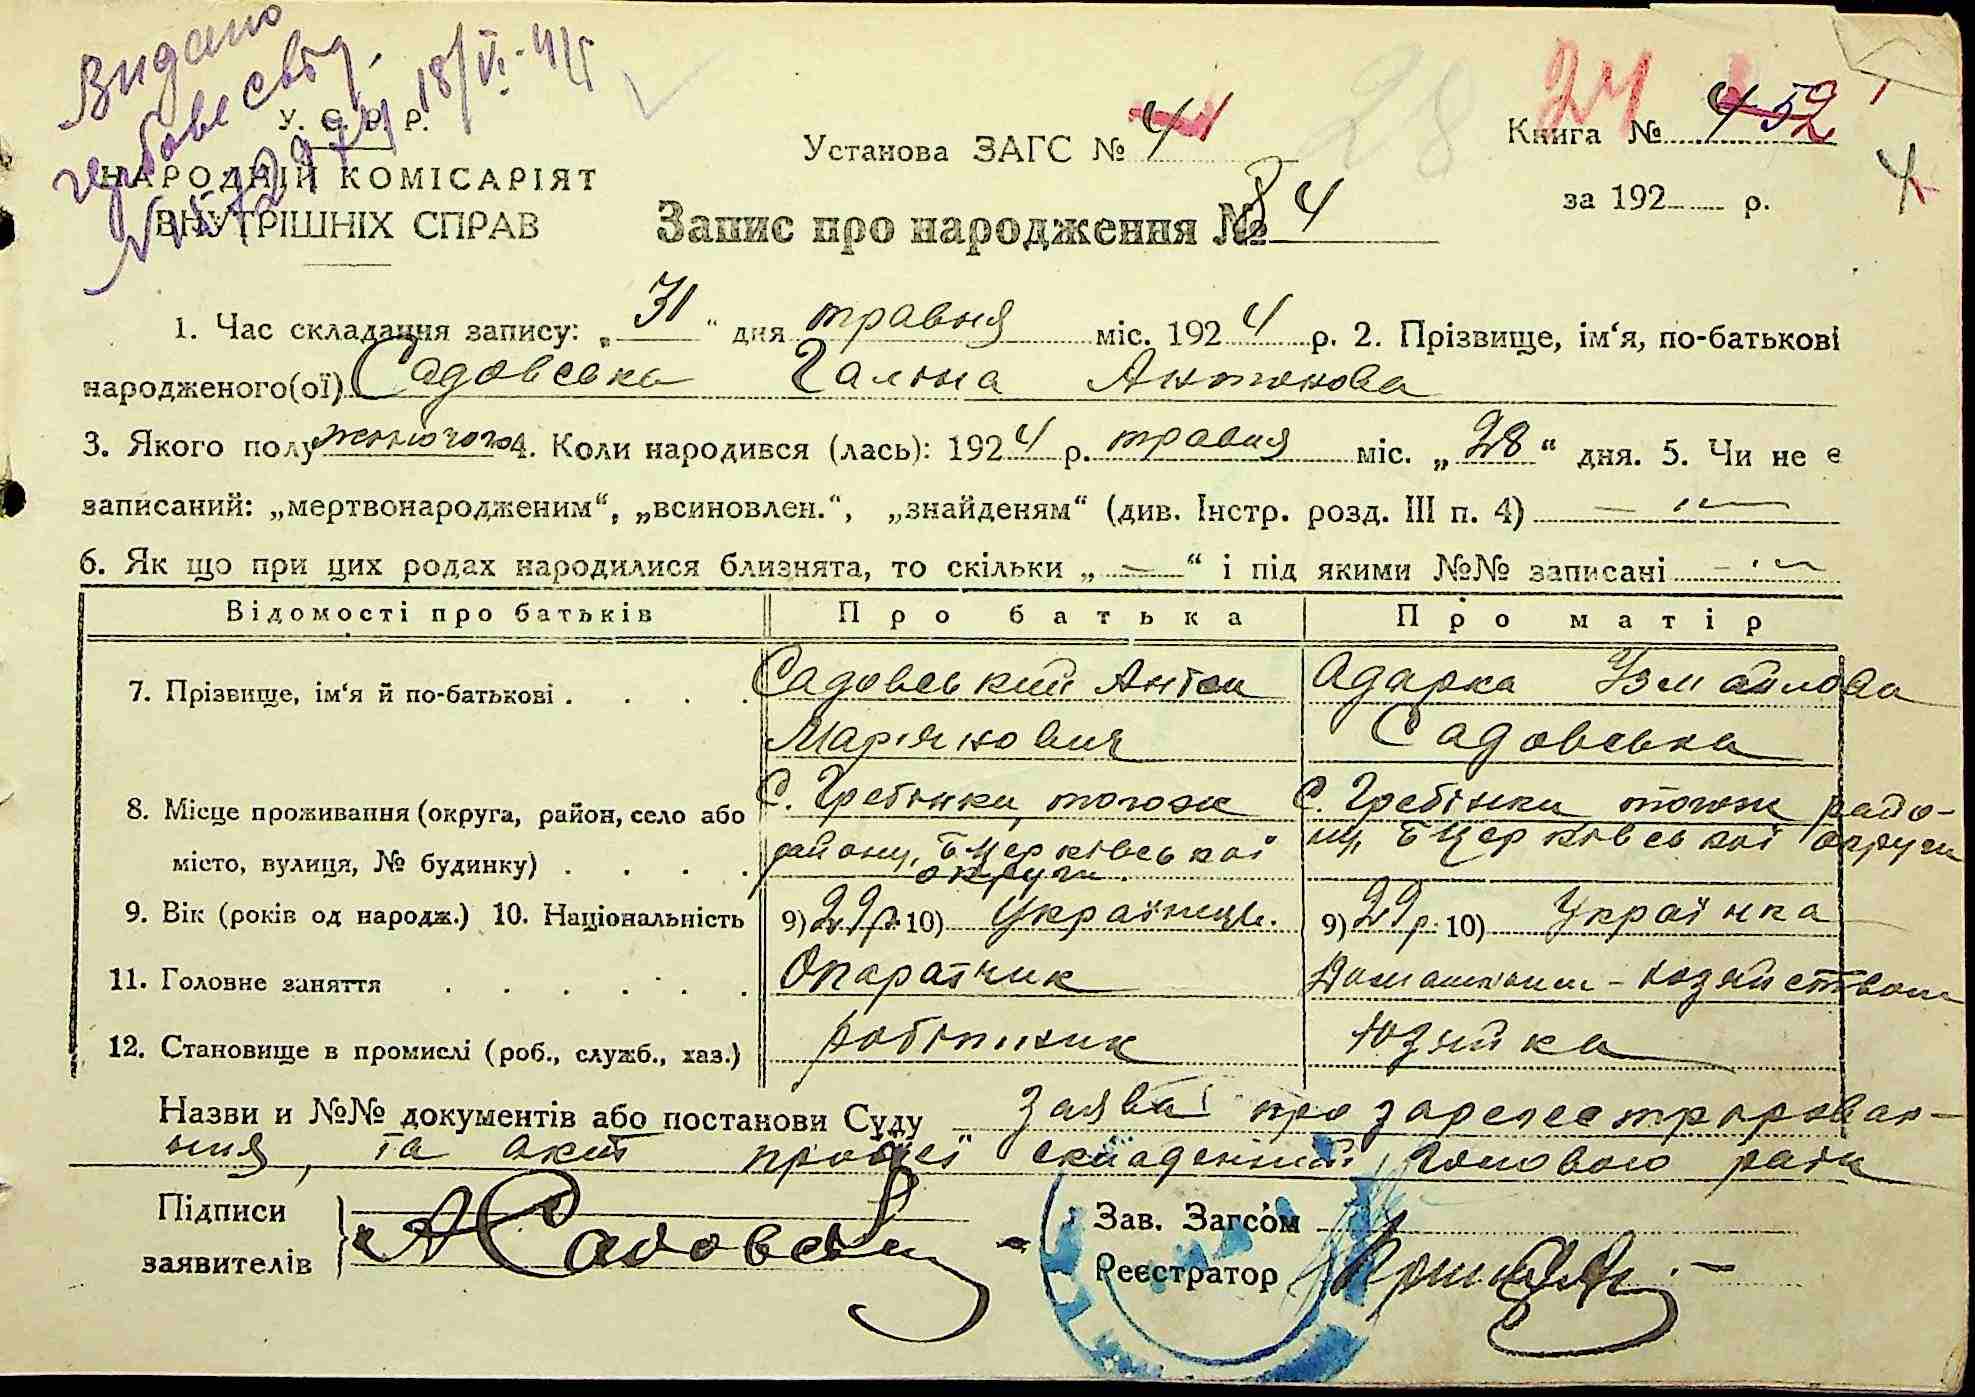 Видано
гербове свід.
18/VI-44
У. С. Р. Р.
НАРОДНІЙ КОМІСАРІЯТ
ВНУТРІШНІХ СПРАВ
Установа ЗАГС № 4
28
24
Книга № 452
за 192 р.
4
Запис про народження № 84
1. Час складання запису: „31“ дня травня міс. 1924 р. 2. Прізвище, ім‘я, по-батькові
народженого(ої) Садовська Галина Антонова
3. Якого полу жіночого 4. Коли народився (лась): 1924 р. травня міс. „28“ дня. 5. Чи не є
записаний: „мертвонародженим“, „всиновлен.“, „знайденям“ (див. Інстр. розд. III п. 4) —
6. Як що при цих родах народилися близнята, то скільки „—“ і під якими №№ записані —
Відомості про батьків
Про батька
Про матір
7. Прізвище, ім‘я й по-батькові
Садовський Антон
Мар'янович
Одарка Ізмайлова
Садовська
8. Місце проживання (округа, район, село або
місто, вулиця, № будинку)
С. Гребінки, тогож
району, БЦерківської
округи.
С. Гребінки тогож райо-
ну, БЦерківської округи
9. Вік (років од народж.) 10. Національність
9) 29р. 10) Українець.
9) 29р. 10) Українка
11. Головне заняття
Опаратчик
Домашним-хозяйством
12. Становище в промислі (роб., служб., хаз.)
робітник
хозяйка
Назви и №№ документів або постанови Суду Заява про зарегестрирован-
ня, та акт складений головою
Підписи
заявителів
АСадовський
Зав. Загсом
Реєстратор